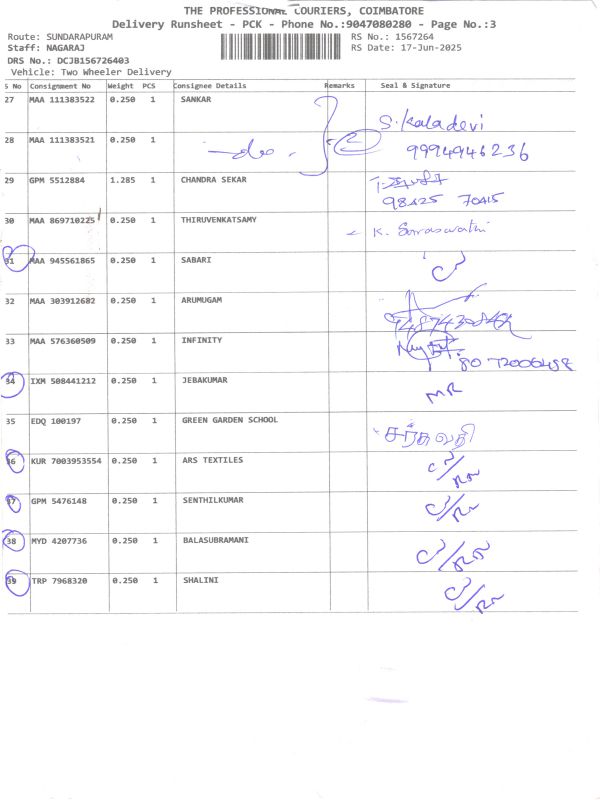 THE PROFESSIONAL COURIERS, COIMBATORE
Delivery Runsheet - PCK - Phone No.:9047080280 - Page No.:3
Route: SUNDARAPURAM RS No.: 1567264
Staff: NAGARAJ RS Date: 17-Jun-2025
DRS No.: DCJB156726403
Vehicle: Two Wheeler Delivery
S No Consignment No Weight PCS Consignee Details Remarks Seal & Signature
27 MAA 111383522 0.250 1 SANKAR
S. Kaladevi
28 MAA 111383521 0.250 1 9994946236
29 GPM 5512884 1.285 1 CHANDRA SEKAR
98425 70415
30 MAA 869710225 0.250 1 THIRUVENKATSAMY K. Saraswathi
31 MAA 945561865 0.250 1 SABARI
32 MAA 303912682 0.250 1 ARUMUGAM
33 MAA 576360509 0.250 1 INFINITY
34 IXM 508441212 0.250 1 JEBAKUMAR MR
35 EDQ 100197 0.250 1 GREEN GARDEN SCHOOL
36 KUR 7003953554 0.250 1 ARS TEXTILES
37 GPM 5476148 0.250 1 SENTHILKUMAR
38 MYD 4207736 0.250 1 BALASUBRAMANI
39 TRP 7968320 0.250 1 SHALINI